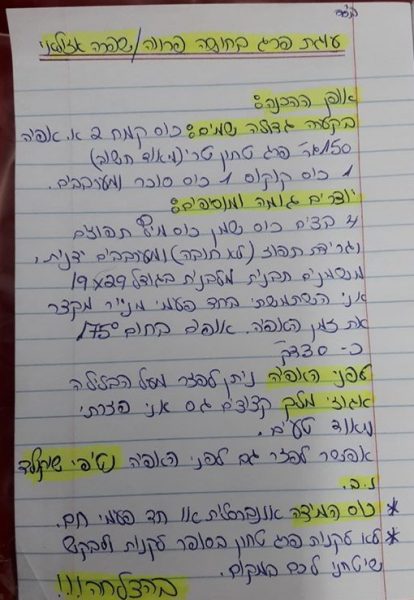 בס"ד
עוגת פרג בחושה פרווה/שפרה אזולאי
אופן ההכנה:
בקערה גדולה שמים: כוס קמח 2 א. אפיה
150 גר' פרג טחון טרי (מאוד חשוב)
1 כוס קוקוס 1 כוס סוכר ומערבבים.
יוצרים גומה ומוסיפים:
4 בצים כוס שמן כוס מיץ תפוזים
וגרידת תפוז (לא חובה) ומערבבים ידנית,
משמנים תבנית מלבנית בגודל 29X19
אני השתמשתי בחד פעמי מנייר מקצר
את זמן האפיה. אופים בחום 175°
כ- 30 דק'
לפני האפיה ניתן לפזר מעל הבלילה
אגוזי מלך קצוצים גס אני פזרתי
מאוד טעים.
אפשר לפזר גם לפני האפיה נטיפי שוקולד
נ.ב.
* כוס המידה אוניברסלית או חד פעמי חם.
* לא לקנות פרג טחון בסופר לקנות ולבקש
שיטחנו לכם במקום.
בהצלחה!!!